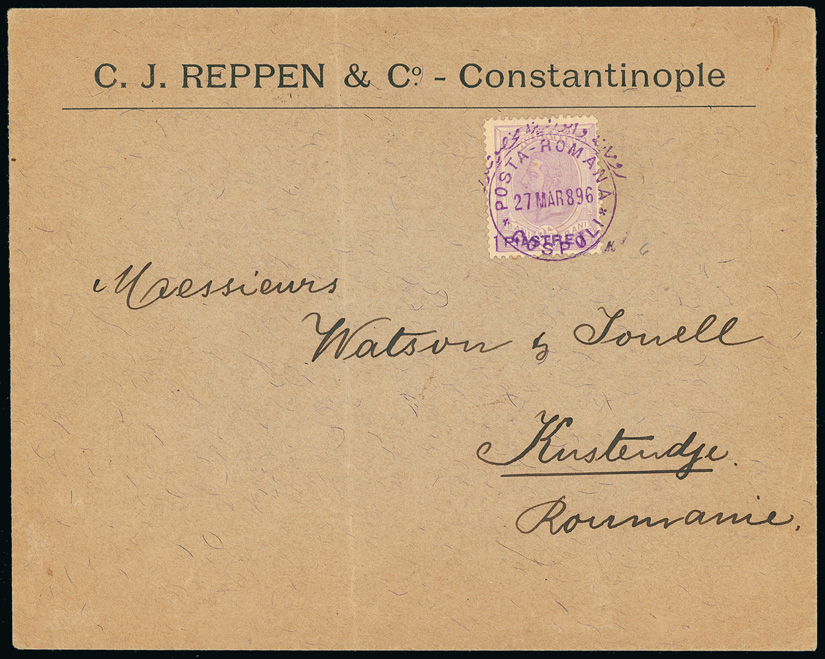 C. J. REPPEN & Cº. - Constantinople
POSTA-ROMANĂ
27 MAR 896
* COSPOLI *
1 PIASTRE 1
Messieurs
Watson & Youell
Kustendje.
Roumanie.